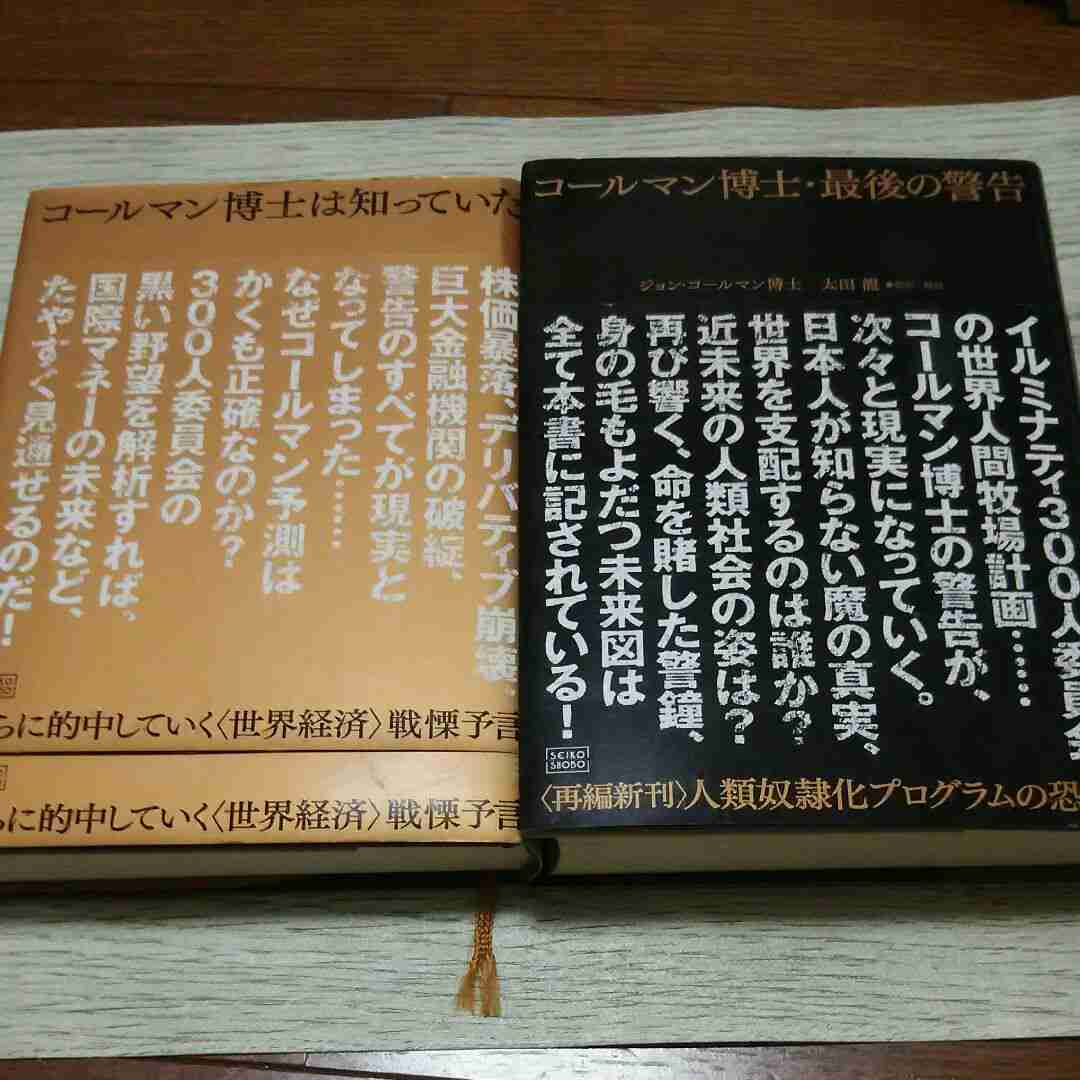 コールマン博士は知っていた
株価暴落、デリバティブ崩壊、
巨大金融機関の破綻、
警告のすべてが現実と
なってしまった……
なぜコールマン予測は
かくも正確なのか？
300人委員会の
黒い野望を解析すれば、
国際マネーの未来など、
たやすく見通せるのだ！
らに的中していく〈世界経済〉戦慄予言
らに的中していく〈世界経済〉戦慄予言
コールマン博士・最後の警告
ジョン・コールマン博士 太田龍
イルミナティ300人委員会
の世界人間牧場計画……
コールマン博士の警告が、
次々と現実になっていく。
日本人が知らない魔の真実、
世界を支配するのは誰か？
近未来の人類社会の姿は？
再び響く、命を賭した警鐘、
身の毛もよだつ未来図は
全て本書に記されている！
SEIKO
SHOBO
〈再編新刊〉人類奴隷化プログラムの恐